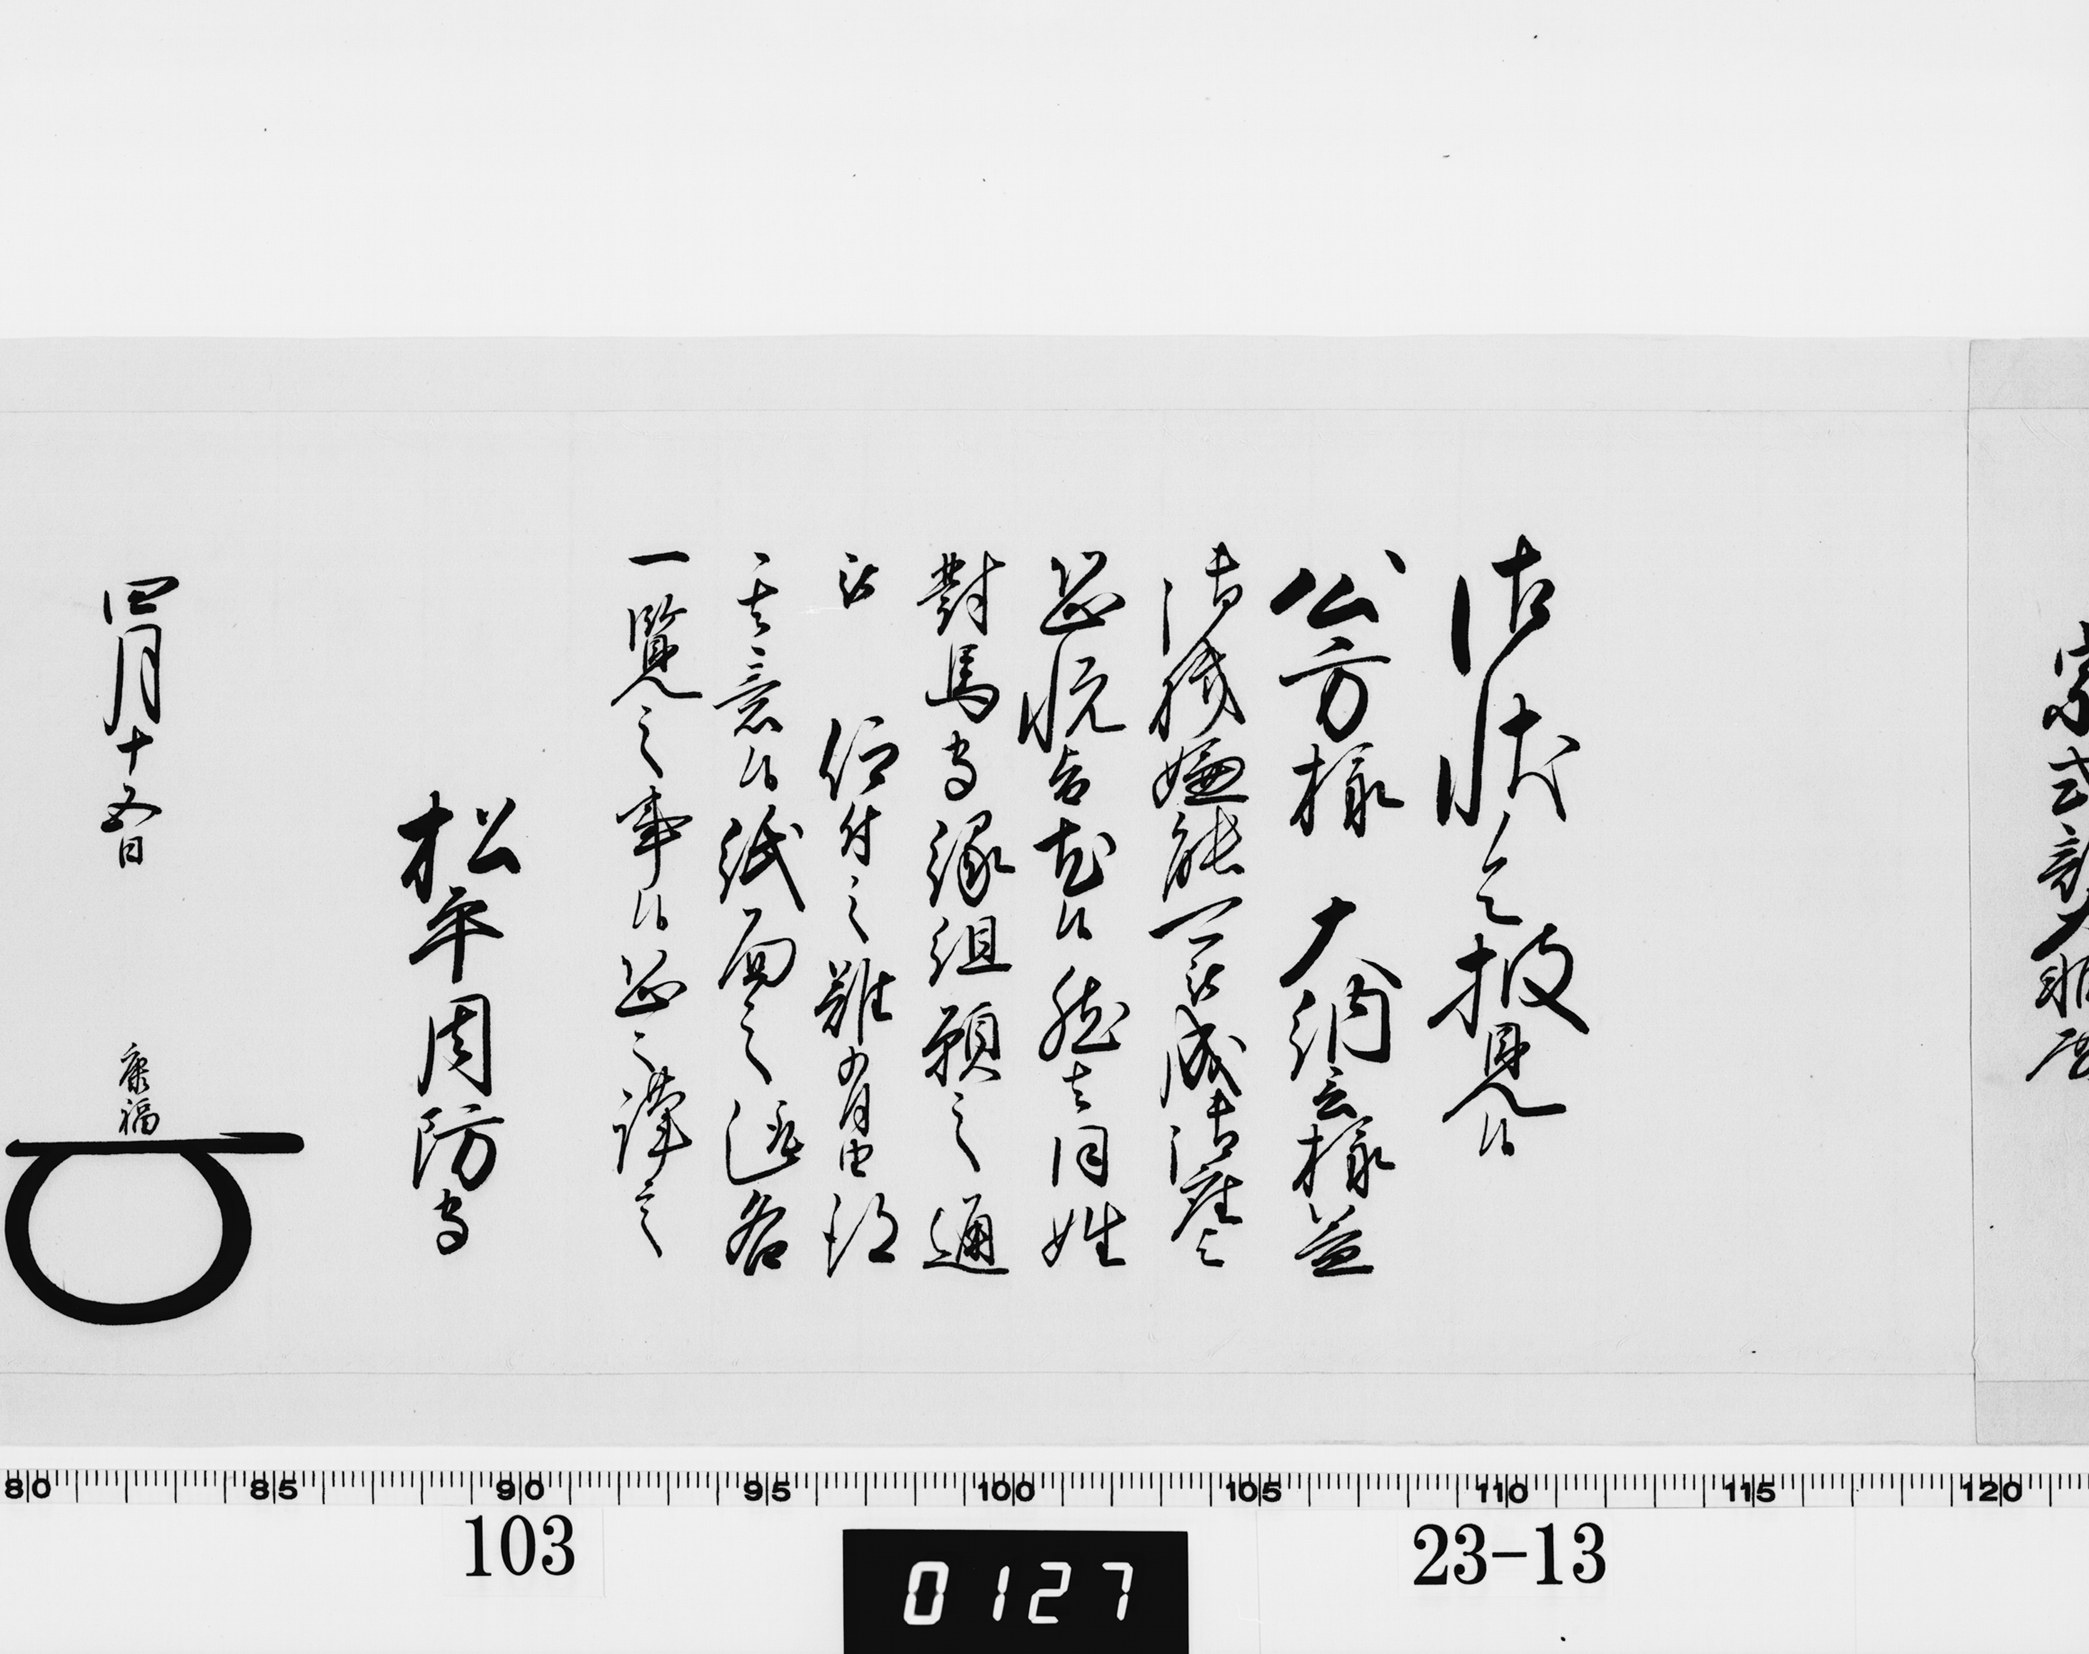 宗式部大輔殿
御状令披見候
公方様 大納言様益
御機嫌能被成御座
恐悦旨尤候然者同姓
對馬守縁組願之通
被 仰付之難有由得
其意候紙面之趣各
一覧之事候恐々謹言
松平周防守
四月十五日
康福
80 85 90 95 100 105 110 115 120
103
0127
23-13